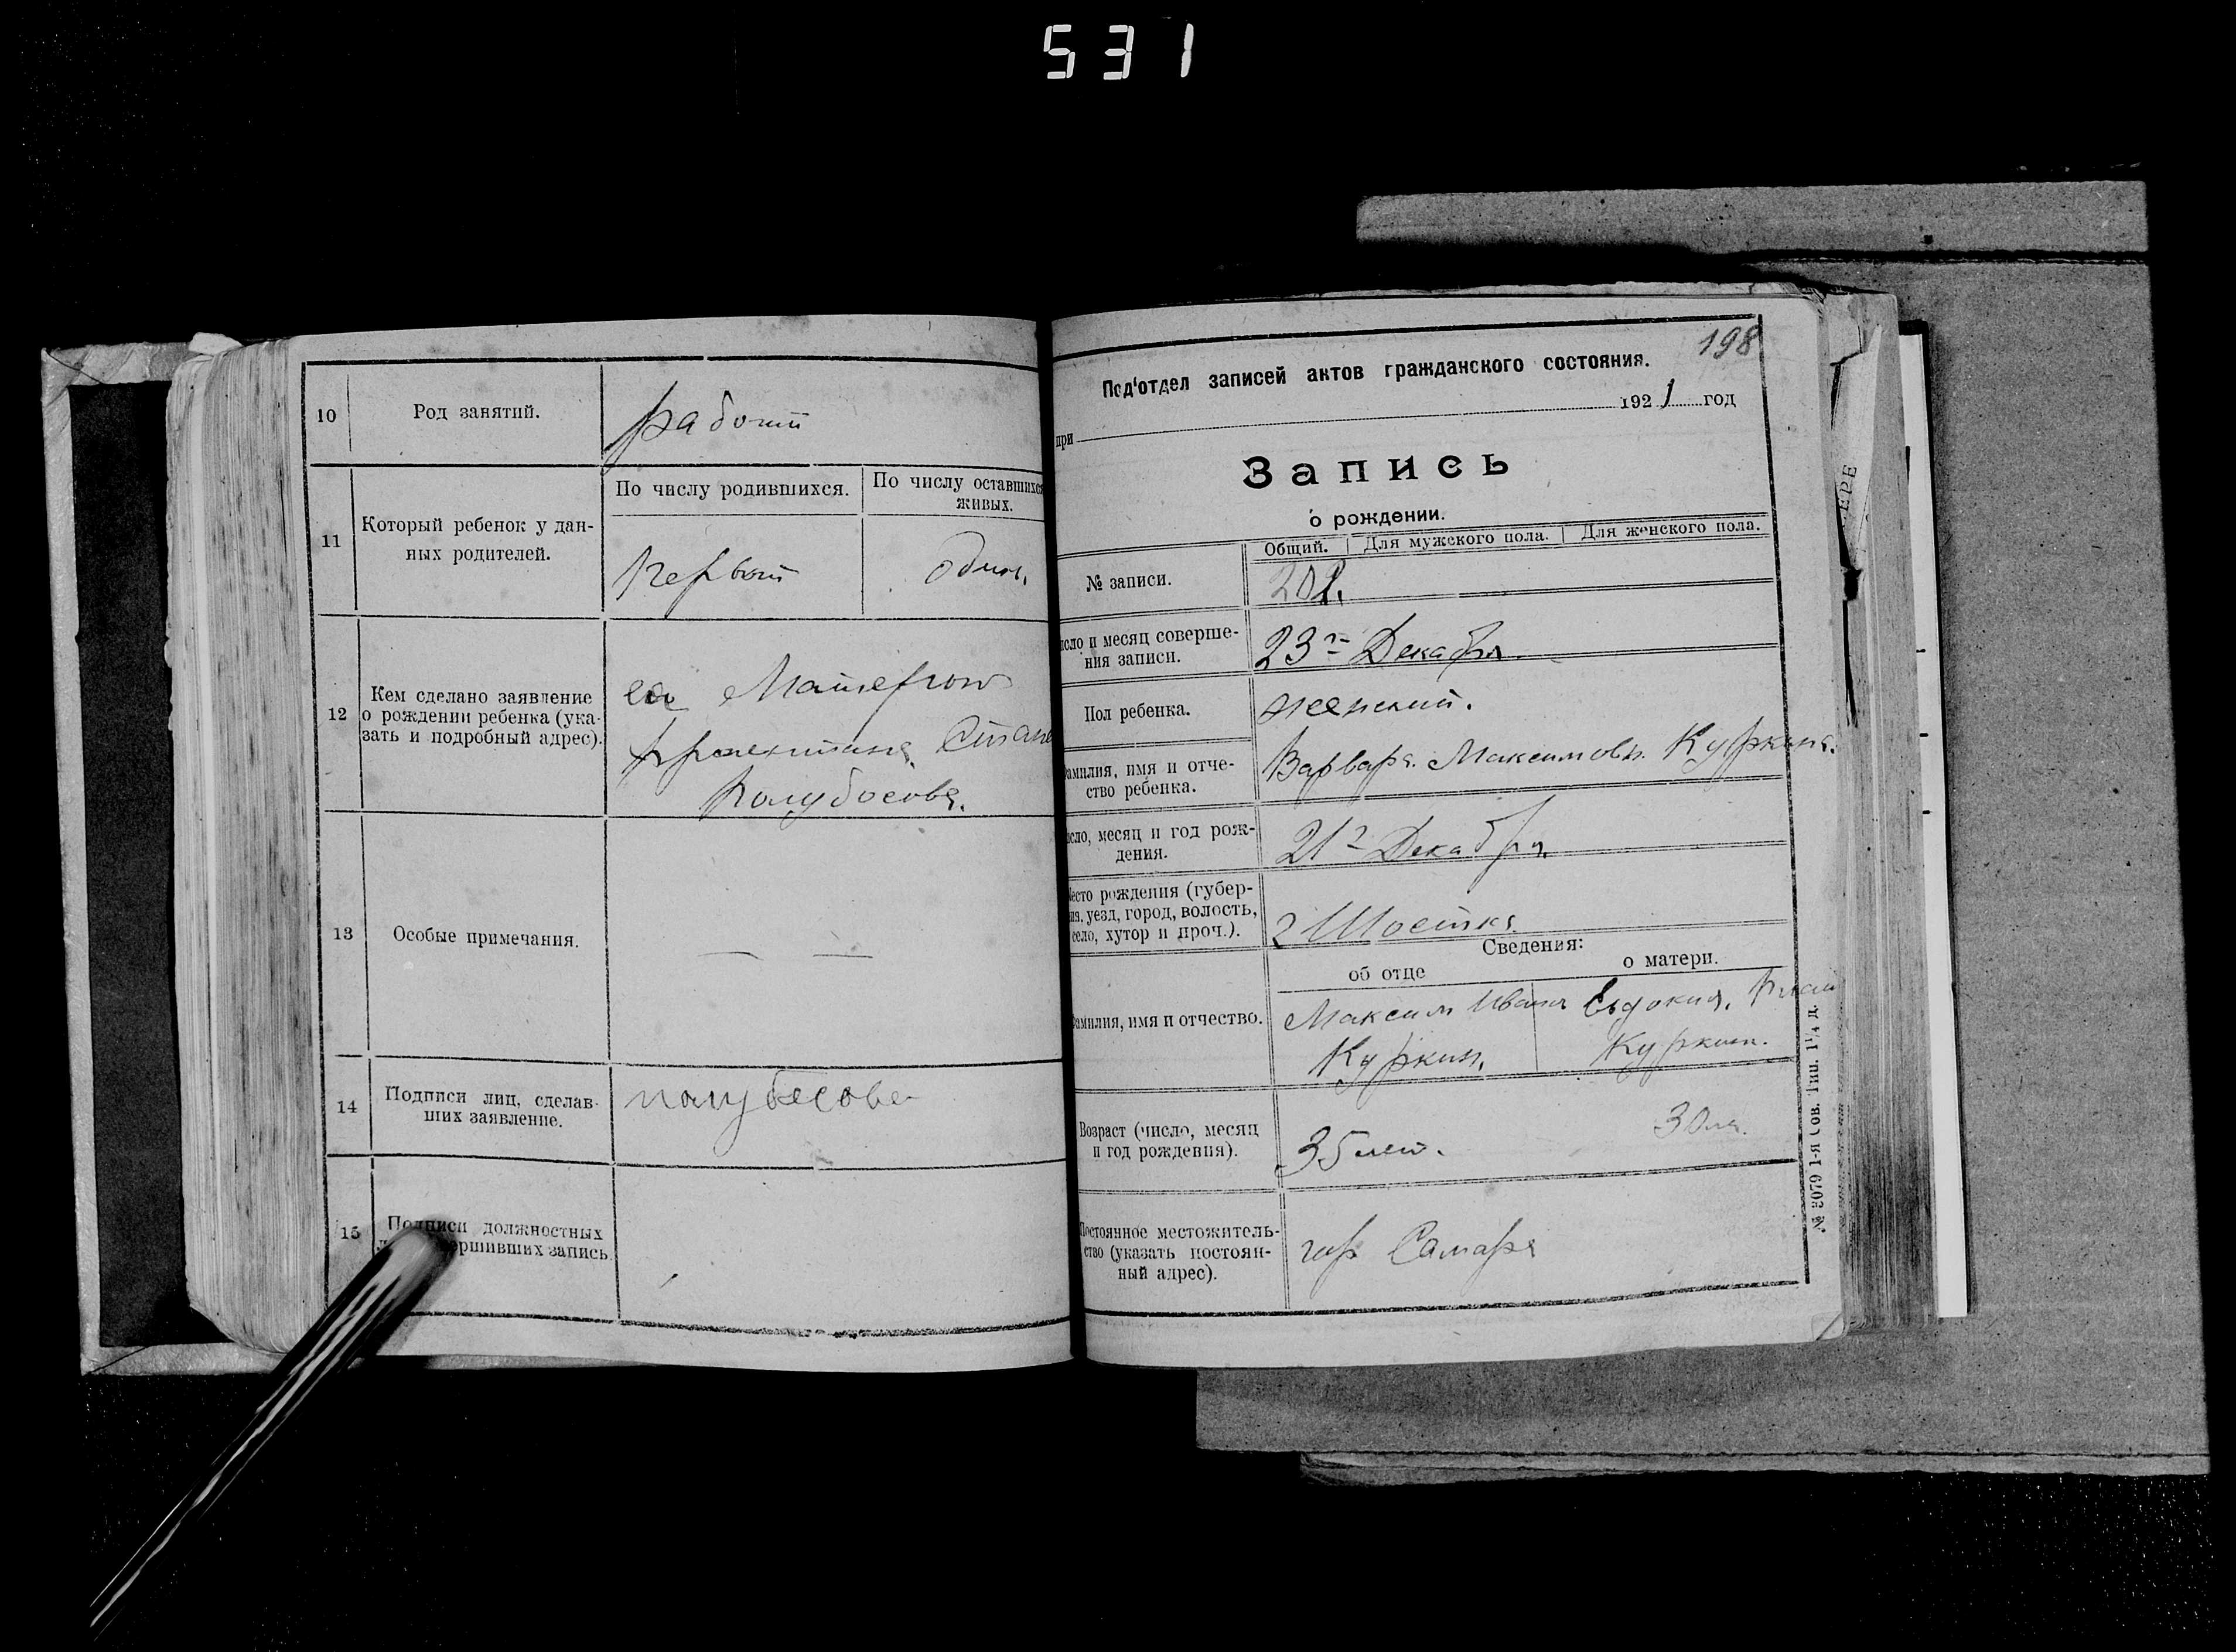 531
10
Род занятий.
рабочий
11
Который ребенок у дан-
ных родителей.
По числу родившихся.
По числу оставшихся
живых.
Первый
один.
12
Кем сделано заявление
о рождении ребенка (ука-
зать и подробный адрес).
ея Матерью
Полубосова.
13
Особые примечания.
— —
14
Подписи лиц, сделав-
ших заявление.
15
Подписи должностных
ершивших запись
198
Под'отдел записей актов гражданского состояния.
при 1921 год
Запись
о рождении.
Общий. Для мужского пола. Для женского пола.
№ записи.
202.
исло и месяц соверше-
ния записи.
23го Декабря
Пол ребенка.
женский.
амилия, имя и отче-
ство ребенка.
Варвара Максимовн. Куркина.
исло, месяц и год рож-
дения.
21го Декабря.
Место рождения (губер-
ия, уезд, город, волость,
село, хутор и проч.).
г Шостка
Сведения:
об отце
о матери.
амилия, имя и отчество.
Максим Иван
Куркин.
Евдокия.
Куркин.
Возраст (число, месяц
и год рождения).
35 лет.
30 ле.
Постоянное местожитель-
ство (указать постоян-
ный адрес).
гор Самара
1-я Сов. Тип. 1¼ д.